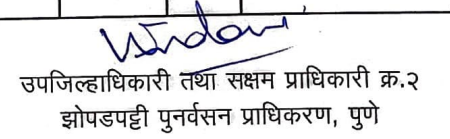 उपजिल्हाधिकारी तथा सक्षम प्राधिकारी क्र.२
झोपडपट्टी पुनर्वसन प्राधिकरण, पुणे